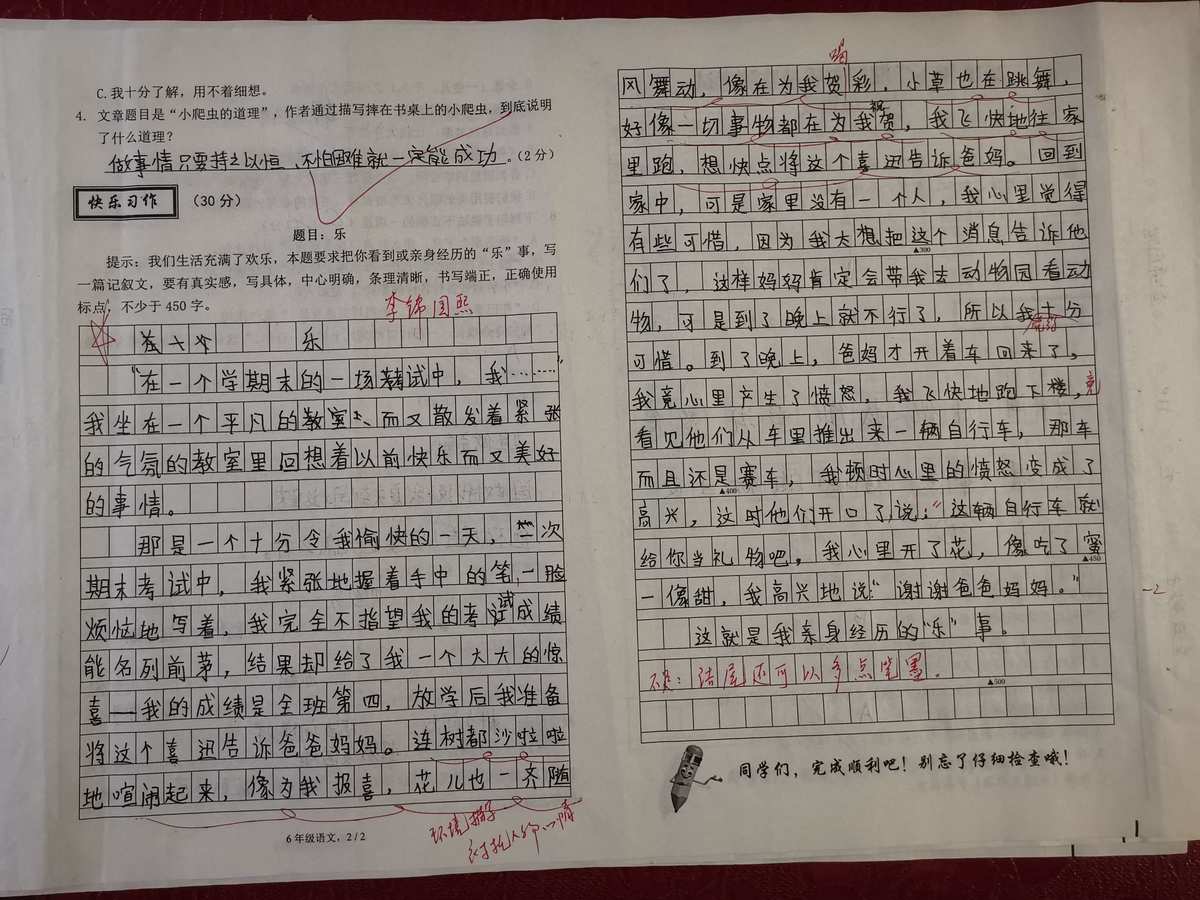 C.我十分了解，用不着细想。
4. 文章题目是“小爬虫的道理”，作者通过描写摔在书桌上的小爬虫，到底说明
了什么道理？
做事情只要持之以恒、不怕困难就一定能成功。（2 分）
快乐习作 （30 分）
题目：乐
提示：我们生活充满了欢乐，本题要求把你看到或亲身经历的“乐”事，写
一篇记叙文，要有真实感，写具体，中心明确，条理清晰，书写端正，正确使用
标点，不少于 450 字。
李锦国熙
乐
“在一个学期末的一场考试中，我……”
我坐在一个平凡的教室、而又散发着紧张
的气氛的教室里回想着以前快乐而又美好
的事情。
那是一个十分令我愉快的一天，一次
期末考试中，我紧张地握着手中的笔，一脸
烦恼地写着，我完全不指望我的考试成绩
能名列前茅，结果却给了我一个大大的惊
喜—我的成绩是全班第四，放学后我准备
将这个喜迅告诉爸爸妈妈。连树都沙啦啦
地喧闹起来，像为我报喜，花儿也一齐随
环境描写
衬托人的心情
6 年级语文，2 / 2
喝
风舞动，像在为我贺彩，小草也在跳舞，
好像一切事物都在为我祝贺，我飞快地往家
里跑，想快点将这个喜迅告诉爸妈。回到
家中，可是家里没有一个人，我心里觉得
有些可惜，因为我太想把这个消息告诉他
▲300
们了，这样妈妈肯定会带我去动物园看动
物，可是到了晚上就不行了，所以我十分
可惜。到了晚上，爸妈才开着车回来了，
我竟心里产生了愤怒，我飞快地跑下楼，竟
看见他们从车里推出来一辆自行车，那车
而且还是赛车，我顿时心里的愤怒变成了
▲400
高兴，这时他们开口了，说：“这辆自行车就
给你当礼物吧，我心里开了花，像吃了蜜
▲450
一像甜，我高兴地说：“谢谢爸爸妈妈。”
-2
这就是我亲身经历的“乐”事。
结尾还可以多点笔墨．
▲500
同学们，完成顺利吧！别忘了仔细检查哦！